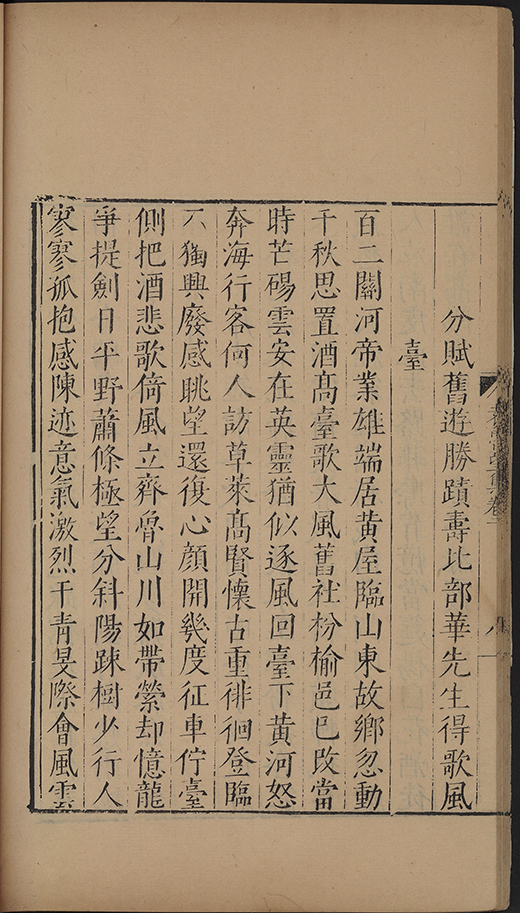 分賦舊遊勝蹟壽比部華先生得歌風
臺
百二關河帝業雄端居黄屋臨山東故鄉忽動
千秋思置酒髙臺歌大風舊社枌榆邑已改當
時芒碭雲安在英靈猶似逐風回臺下黄河怒
奔海行客何人訪草萊髙賢懷古重徘徊登臨
不獨興廢感眺望還復心顔開幾度征車佇臺
側把酒悲歌倚風立齊魯山川如帶縈却憶龍
爭提劍日平野蕭條極望分斜陽踈樹少行人
寥寥孤抱感陳迹意氣激烈干青旻際會風雲
卷一
八